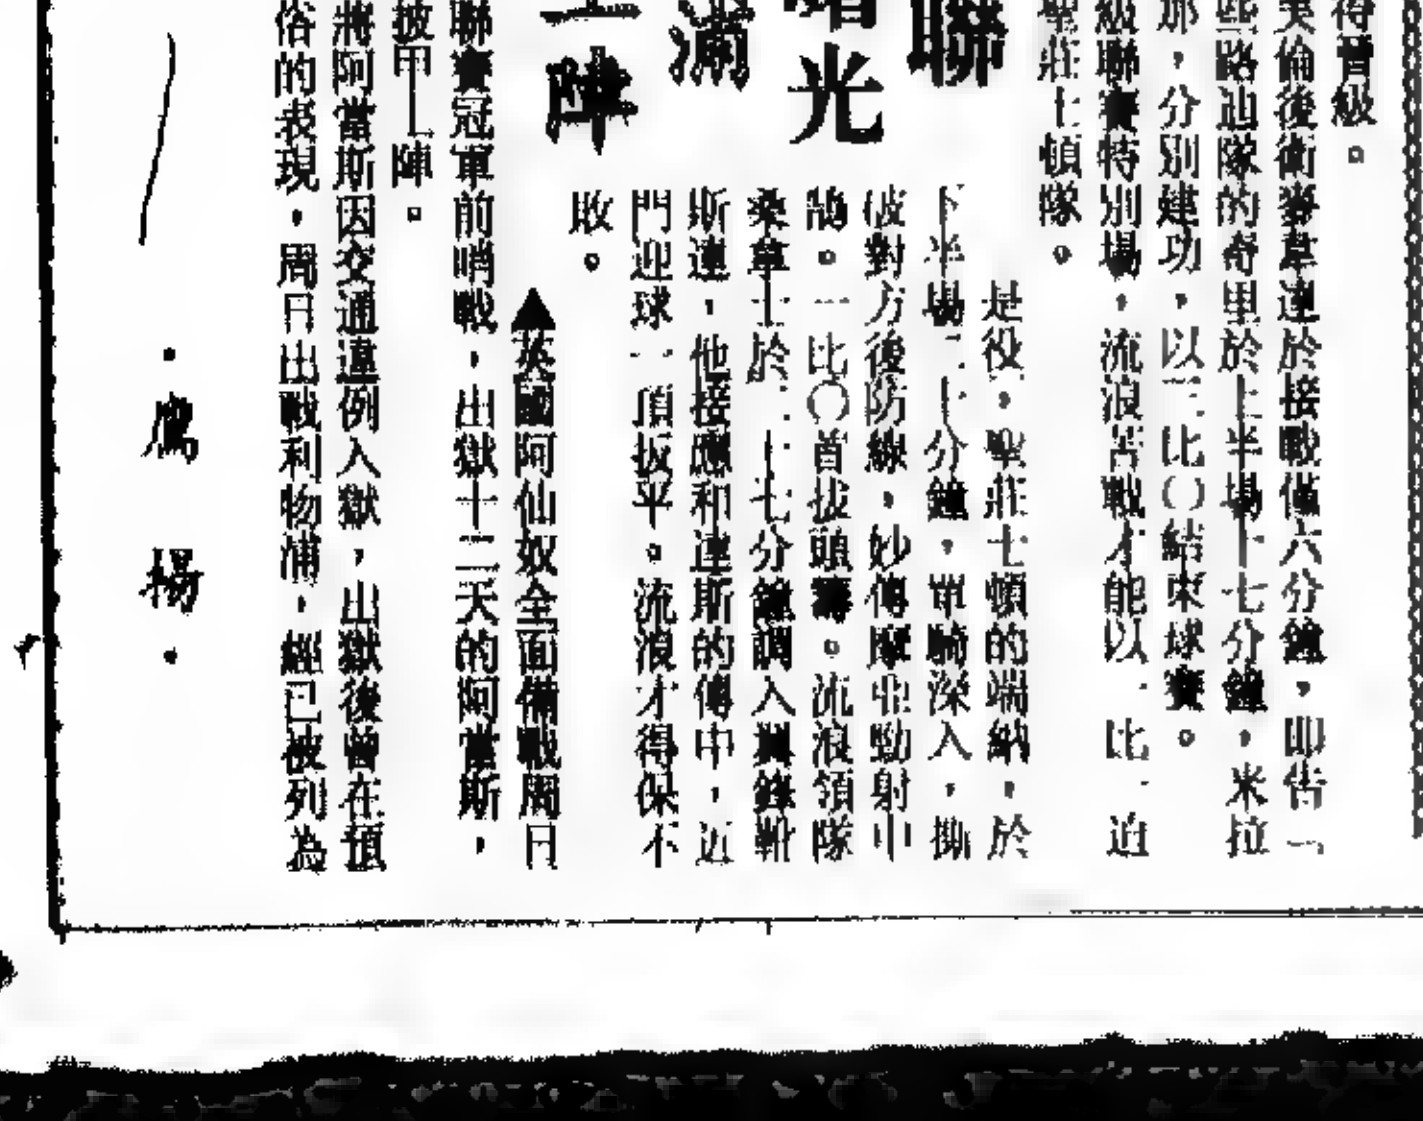 得晉級。
美倫後衛麥草達於接戰僅六分鐘，即告一
些路迪隊的奇里於上半場十七分鐘，米拉
那，分別建功，以三比〇結束球賽。
級聯賽特別場，流浪苦戰才能以一比一迫
聖莊士頓隊。
是役，聖莊士頓的端納，於
下半場二十分鐘，單騎深入，撕
破對方後防線，妙傳摩亞勁射中
鵠。一比〇首拔頭籌。流浪領隊
桑拿士於二十七分鐘調入翼鋒靴
斯連，他接應和連斯的傳中，近
門迎球一頂扳平。流浪才得保不
敗。
聯
曙光
滿
上陣
▲英國阿仙奴全面備戰周日
聯賽冠軍前哨戰，出獄十二天的阿當斯，
披甲上陣。
將阿當斯因交通違例入獄，出獄後曾在預
俗的表現，周日出戰利物浦，經已被列為
·鷹揚·